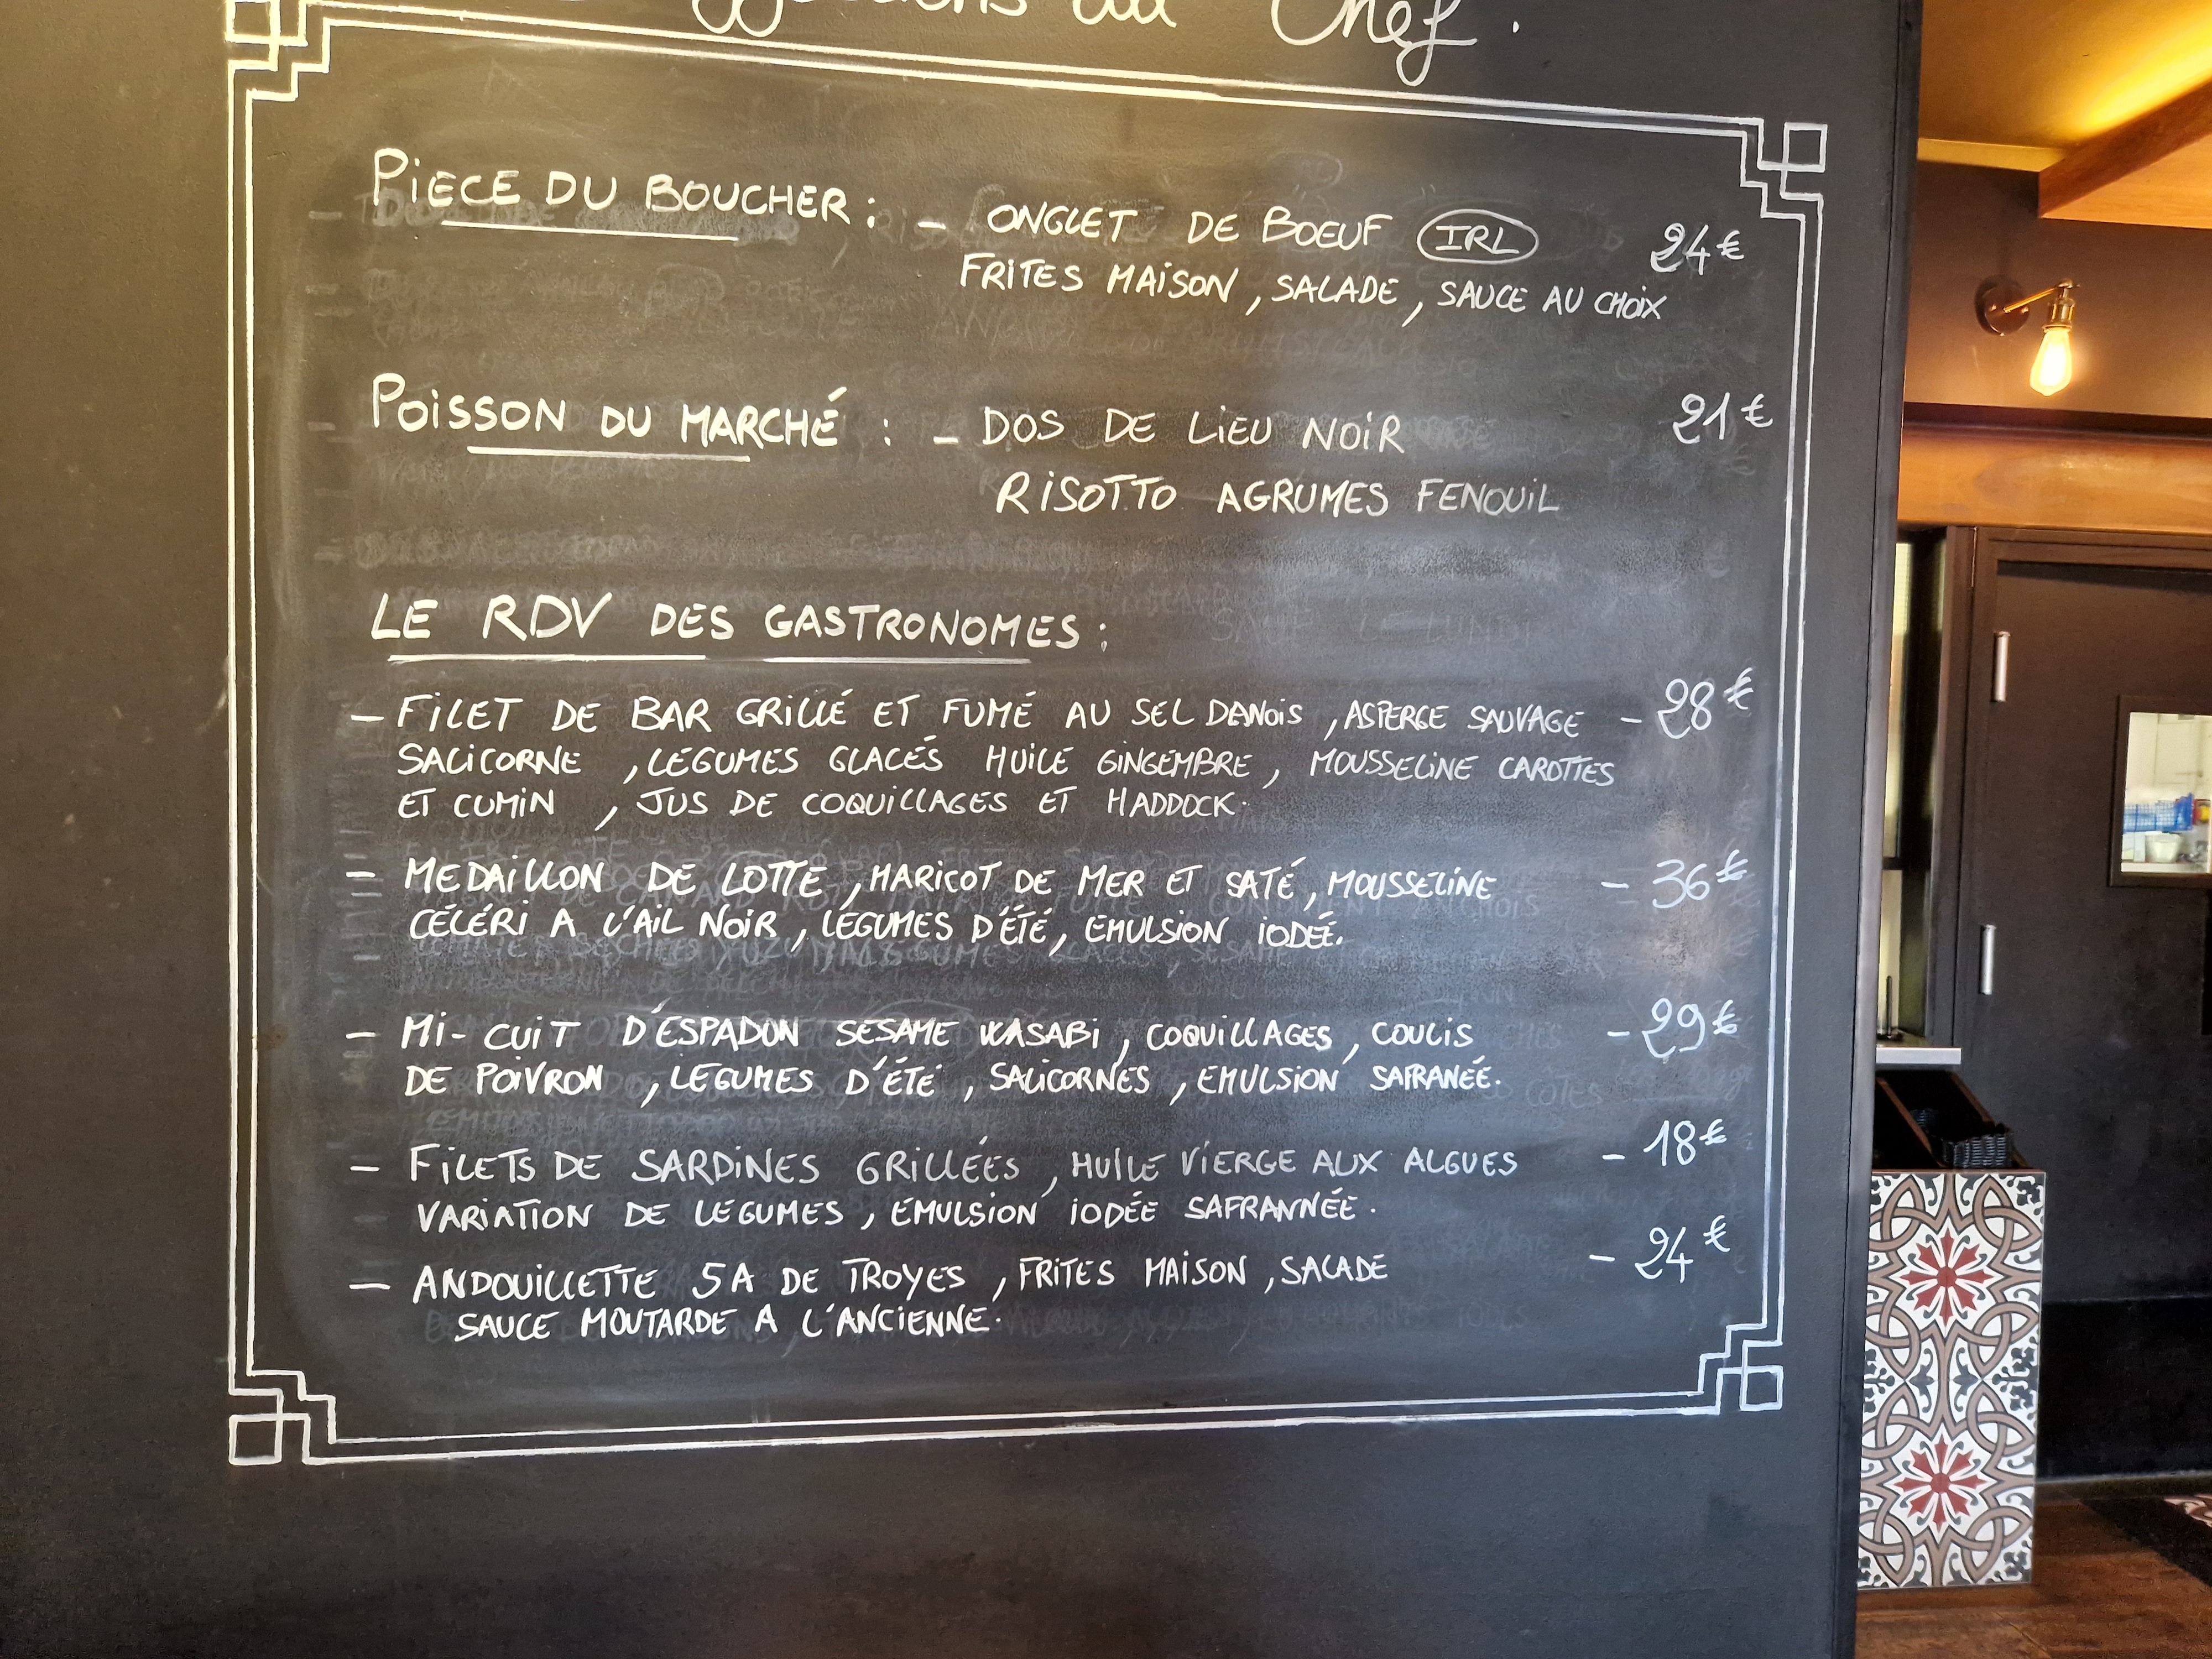 du Chef.
PIECE DU BOUCHER : - ONGLET DE BOEUF IRL 24€
FRITES MAISON, SALADE, SAUCE AU CHOIX
POISSON DU MARCHÉ : - DOS DE LIEU NOIR 21€
RISOTTO AGRUMES FENOUIL
LE RDV DES GASTRONOMES :
- FILET DE BAR GRILLÉ ET FUMÉ AU SEL DANOIS, ASPERGE SAUVAGE - 28€
SALICORNE, LÉGUMES GLACÉS HUILE GINGEMBRE, MOUSSELINE CAROTTES
ET CUMIN, JUS DE COQUILLAGES ET HADDOCK.
- MEDAILLON DE LOTTE, HARICOT DE MER ET SATÉ, MOUSSELINE - 36€
CÉLÉRI A L'AIL NOIR, LÉGUMES D'ÉTÉ, EMULSION IODÉE.
- MI-CUIT D'ESPADON SÉSAME WASABI, COQUILLAGES, COULIS - 29€
DE POIVRON, LÉGUMES D'ÉTÉ, SALICORNES, EMULSION SAFRANÉE.
- FILETS DE SARDINES GRILLÉES, HUILE VIERGE AUX ALGUES - 18€
VARIATION DE LÉGUMES, EMULSION IODÉE SAFRANNÉE.
- ANDOUILLETTE 5A DE TROYES, FRITES MAISON, SALADE - 24€
SAUCE MOUTARDE A L'ANCIENNE.